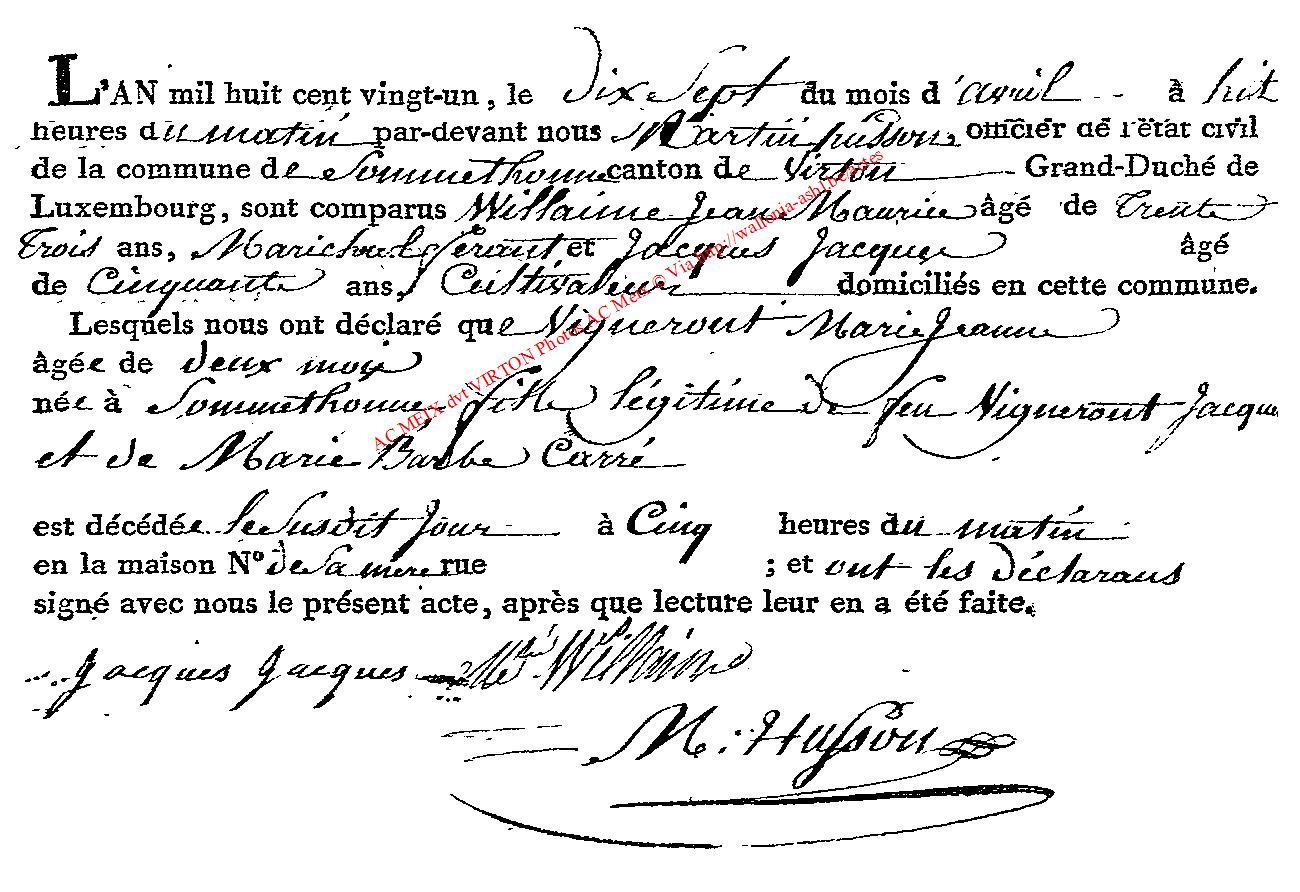 L'AN mil huit cent vingt-un, le dix Sept du mois d'avril à huit
heures du matin par-devant nous Martin husson, officier de l'état civil
de la commune de Sommethonne canton de Virton Grand-Duché de
Luxembourg, sont comparus Willaime Jean Maurice âgé de Trente
Trois ans, Marichal ferant et Jacques Jacques âgé
de Cinquante ans, Cultivateur domiciliés en cette commune.
Lesquels nous ont déclaré que Vigneront Marie Jeanne
âgée de deux mois
née à Sommethonne fille légitime de feu Vigneront Jacques
et de Marie Barbe Carré
est décédée le Susdit Jour à Cinq heures du matin
en la maison N° de Sa mere rue ; et ont les déclarans
signé avec nous le présent acte, après que lecture leur en a été faite.
Jacques Jacques Willaime
M. Husson
AC MEIX-dvt VIRTON Photos AC Meix © Via http://wallonia-asbl.be/actes